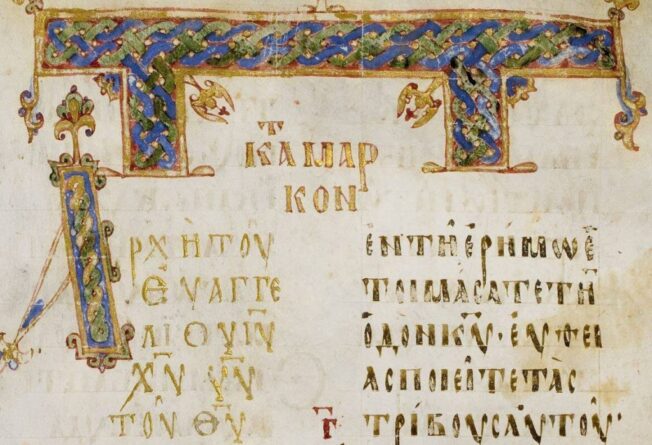 ΚΑΤ ΜΑΡ
ΚΟΝ
ΑΡΧΗ ΤΟΥ
ΕΥΑΓΓΕ
ΛΙΟΥ ΙΥ̅
ΧΥ̅ ΥΥ̅
ΤΟΥ ΘΥ̅
ΕΝ ΤΗ ΕΡΗΜΩ Ε
ΤΟΙΜΑΣΑΤΕ ΤΗ̅
ΟΔΟΝ ΚΥ̅· ΕΥΘΕΙ
ΑΣ ΠΟΙΕΙΤΕ ΤΑΣ
ΤΡΙΒΟΥΣ ΑΥΤΟΥ·